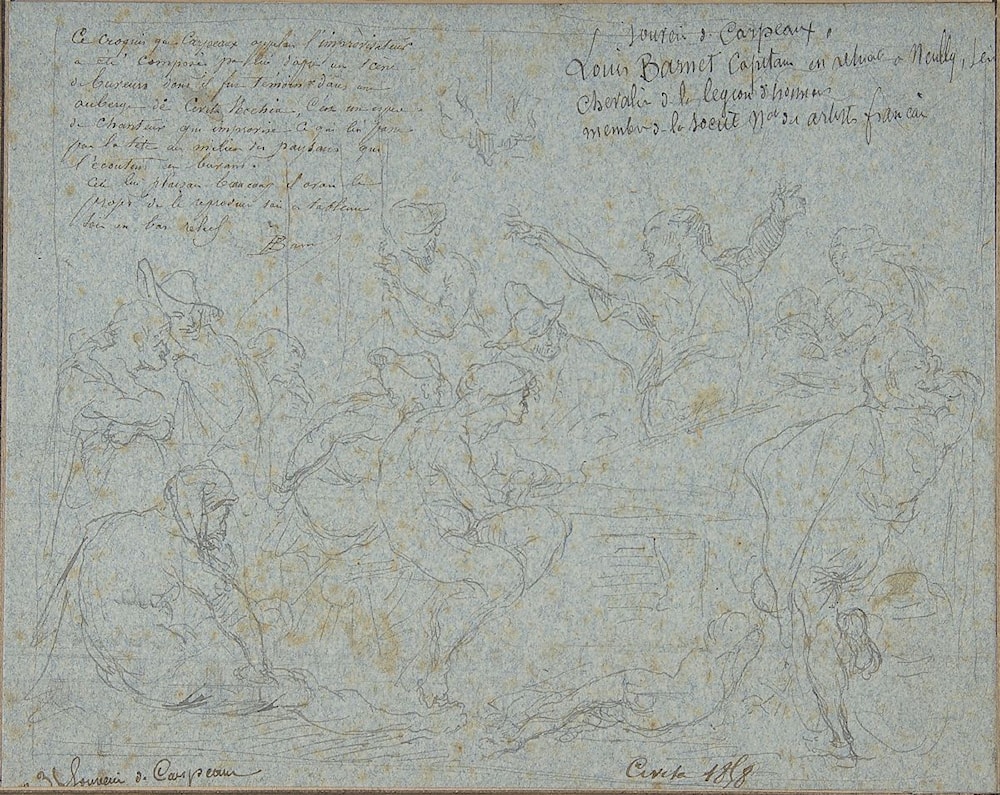 Ce croquis que Carpeaux appelait l'improvisateur
a été composé par lui d'après une scène
de buveurs dont il fut témoin dans une
auberge de Civita Vecchia, C'est une espèce
de chanteur qui improvise ce qui lui passe
par la tête au milieu des paysans qui
l'écoutent en buvant.
lui plaisait beaucoup il avait le
de le reproduire soit en tableau
soit en bas relief
Souvenir de Carpeaux.
Louis Barnet Capitaine en retraite a Neuilly,
Chevalier de la legion d'honneur
membre de la société Nale des artistes francais
Souvenir de Carpeaux
Civita 1858